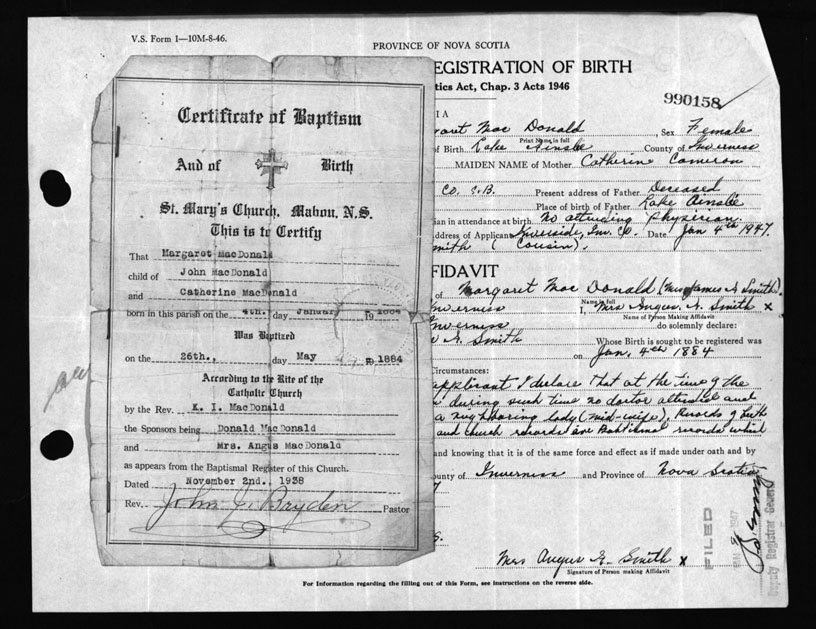 V.S. Form 1—10M-8-46.
PROVINCE OF NOVA SCOTIA
REGISTRATION OF BIRTH
tics Act, Chap. 3 Acts 1946
990158
Certificate of Baptism
And of Birth
St. Mary's Church, Mabou, N.S.
This is to Certify
That Margaret MacDonald
child of John MacDonald
and Catherine MacDonald
born in this parish on the 4th. day January 19 1884
Was Baptized
on the 26th., day May 19 1884
According to the Rite of the
Catholic Church
by the Rev. K. I. MacDonald
the Sponsors being Donald MacDonald
and Mrs. Angus MacDonald
as appears from the Baptismal Register of this Church.
Dated November 2nd., 1938
Rev. John J. Bryden Pastor
IA
garet Mac Donald, Sex Female
Print Name in full
of Birth Lake Ainslie County of Inverness
MAIDEN NAME of Mother Catherine Cameron
Co. C.B. Present address of Father Deceased
Place of birth of Father Lake Ainslie
ian in attendance at birth No attending physician.
ddress of Applicant Inverside, Inv. Co. Date Jan 4th 1947.
mith (Cousin).
FIDAVIT
of Margaret Mac Donald (Mrs James A Smith).
Name in full
Inverness I, Mrs Angus A. Smith x
Name of Person Making Affidavit
Inverness do solemnly declare:
Smith Whose Birth is sought to be registered was
on Jan. 4th 1884
Circumstances:
applicant I declare that at the time of the
during such time no doctor attended and
a neighboring lady (mid-wife). Records of birth
and church records are Baptismal records which
and knowing that it is of the same force and effect as if made under oath and by
ounty of Inverness and Province of Nova Scotia
FILED
1947
Deputy Registrar General
Mrs Angus A. Smith x
Signature of Person making Affidavit
For Information regarding the filling out of this Form, see instructions on the reverse side.